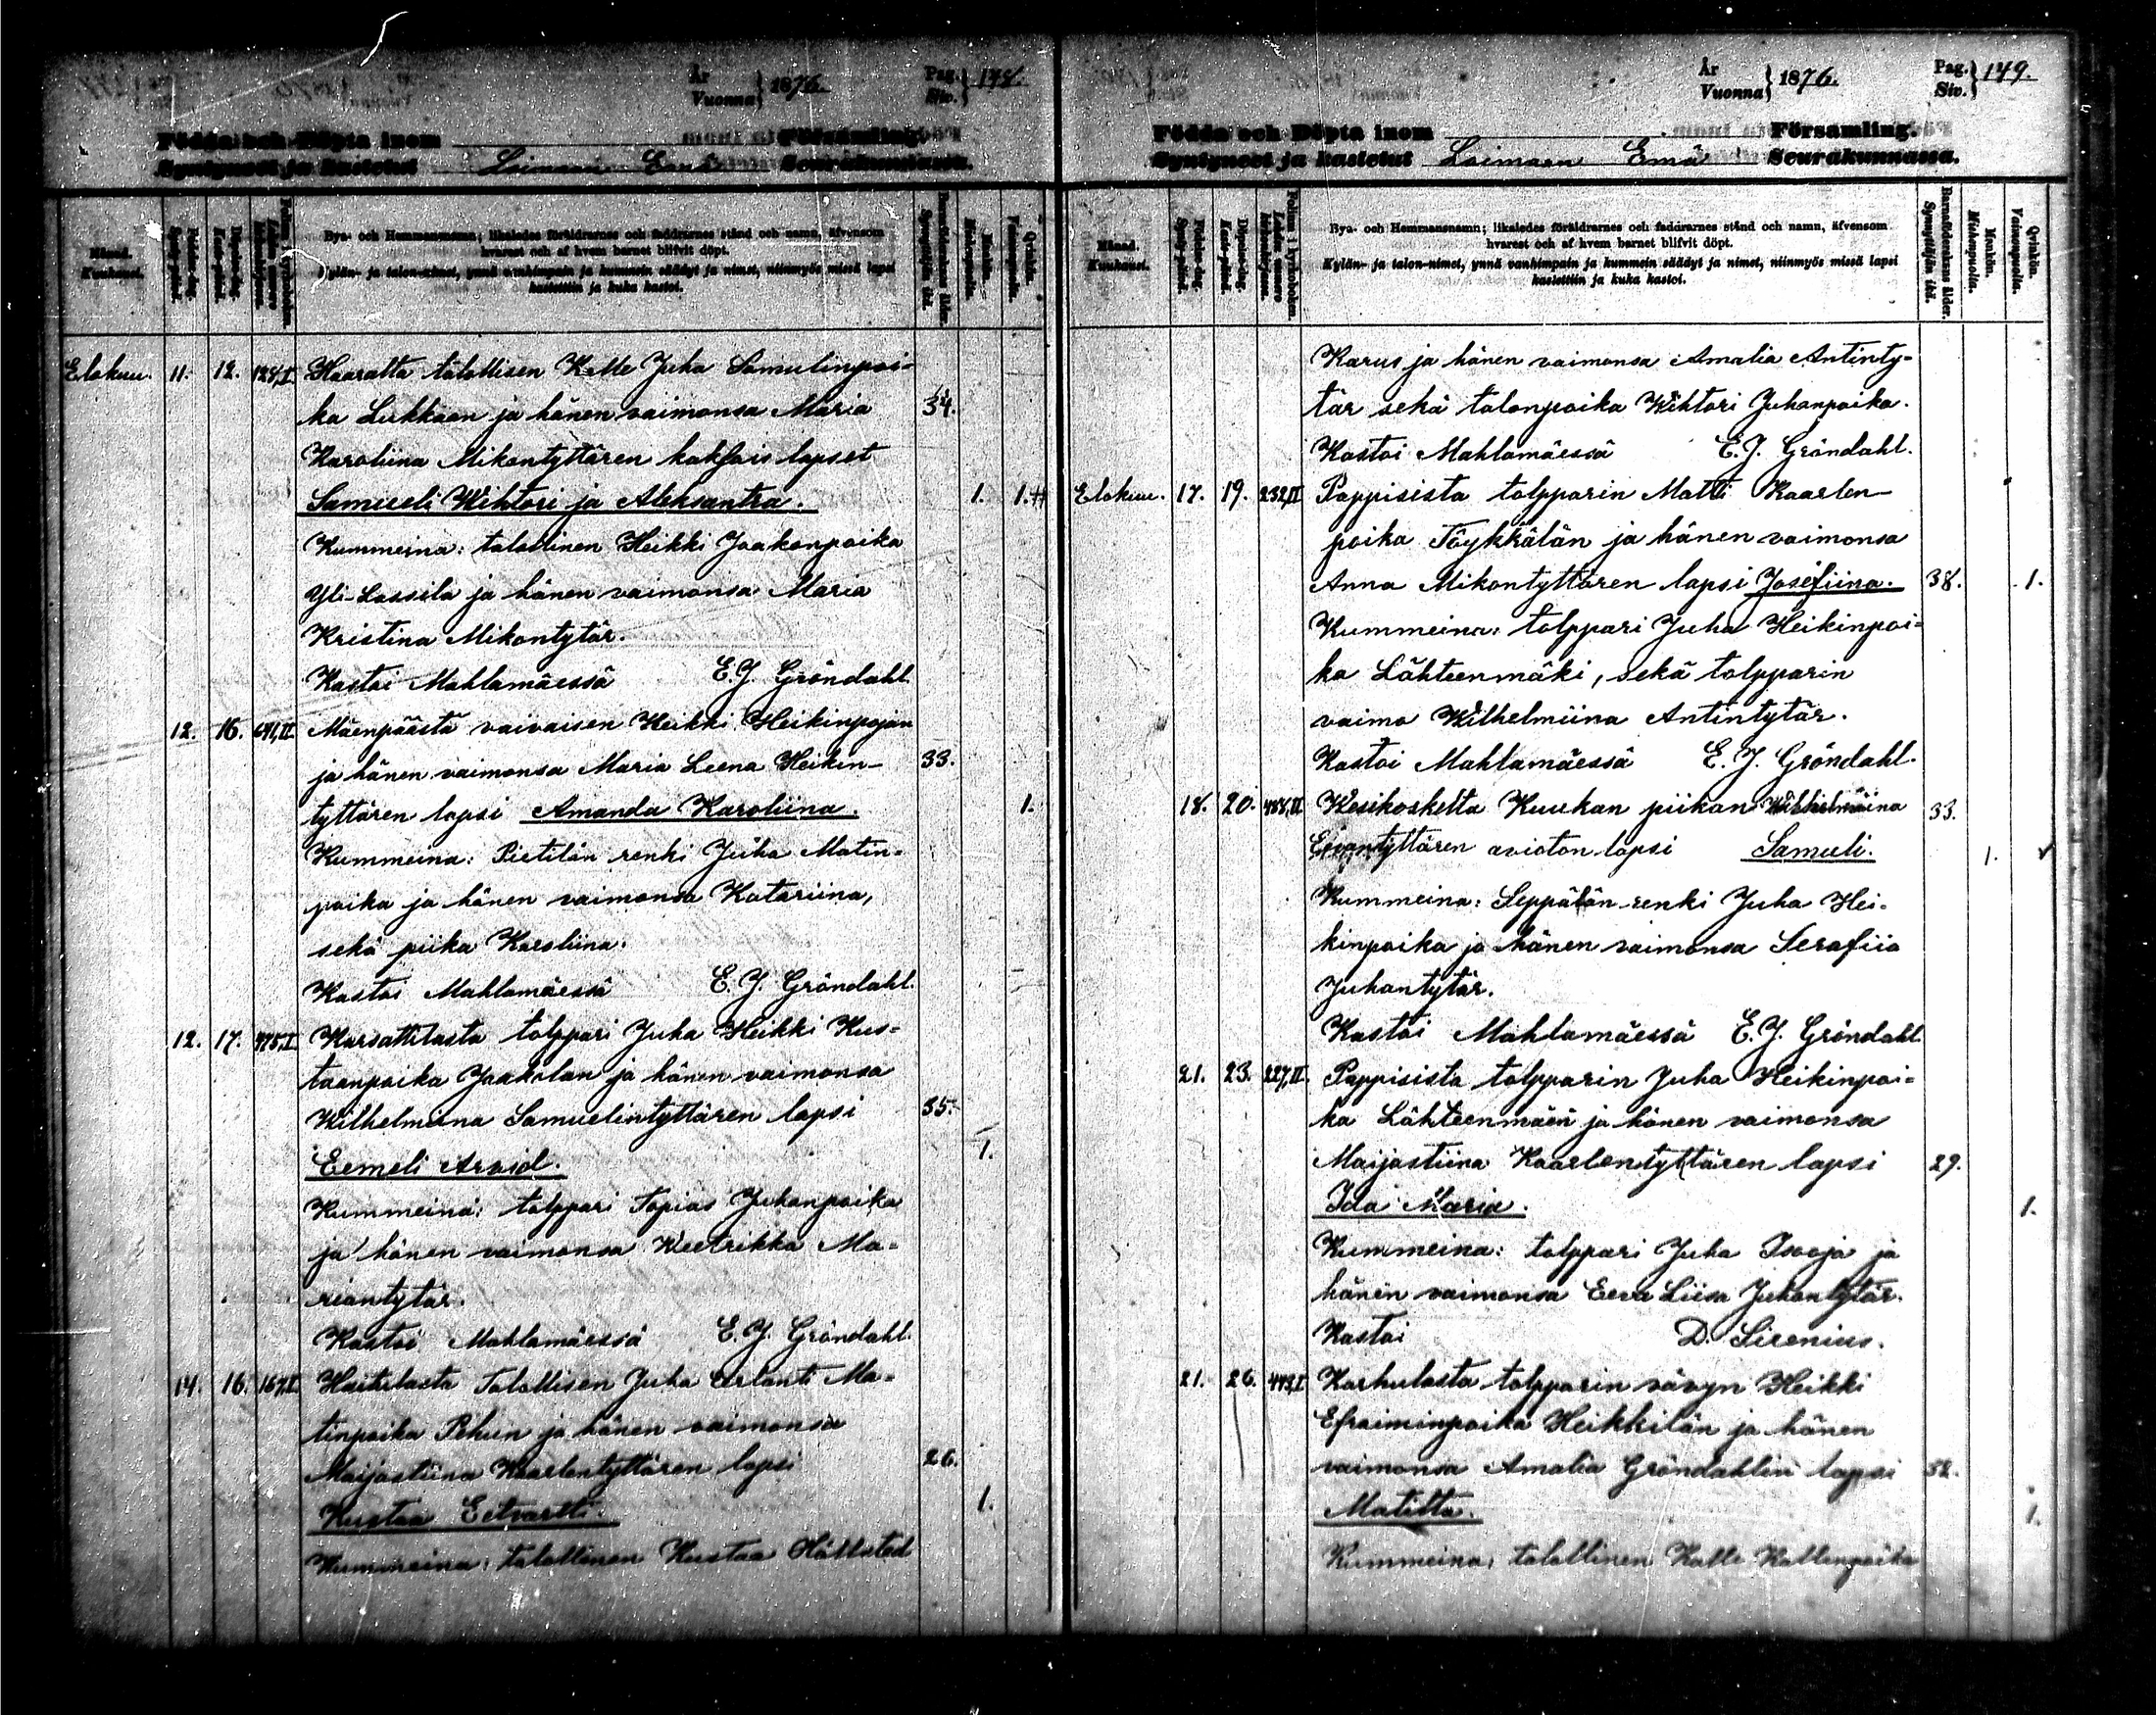 År
Vuonna } 1876.
Pag.
Siv. } 148.
Födda och Döpta inom Församling.
Syntyneet ja kastetut Loimaan Emä Seurakunnassa.
Månad.
Kuukausi.
Födelse-dag.
Synty-päivä.
Döpelse-dag.
Kaste-päivä.
Folium i kyrkoboken.
Bya- och Hemmansnamn; likaledes föräldrarnes och faddrarnes stånd och namn, äfvensom
hvarest och af hvem barnet blifvit döpt.
Kylän- ja talon-nimet, ynnä vanhimpain ja kummein säädyt ja nimet, niinmyös missä lapsi
kastettiin ja kuka kastoi.
Barnaföderskans ålder.
Synnyttäjän ikä.
Mankön.
Miehenpuolia.
Qvinkön.
Vaimonpuolia.
Elokuu. 11. 12. 124,I Haaralta talollisen Kalle Juha Samulinpoi-
ka Lukkaan ja hänen vaimonsa Maria 34.
Karoliina Mikontyttären kaksois lapset
Samueli Wihtori ja Aleksantra. 1. 1.
Kummeina: talollinen Heikki Jaakonpoika
Yli-Lassila ja hänen vaimonsa Maria
Kristina Mikontytär.
Kastoi Mahlamäessä E.J. Gröndahl.
12. 16. 641,II. Mäenpäästä vaivaisen Heikki Heikinpojan
ja hänen vaimonsa Maria Leena Heikin- 33.
tyttären lapsi Amanda Karoliina. 1.
Kummeina: Pietilän renki Juha Matin-
poika ja hänen vaimonsa Katariina,
sekä piika Karoliina.
Kastoi Mahlamäessä E.J. Gröndahl.
12. 17. 475,I. Karsattilasta talppari Juha Heikki Kus-
taanpoika Jaakolan ja hänen vaimonsa
Wilhelmiina Samuelintyttären lapsi 35.
Eemeli Arvid. 1.
Kummeina: talppari Topias Juhanpoika
ja hänen vaimonsa Weetrikka Ma-
riantytär.
Kastoi Mahlamäessä E.J. Gröndahl.
14. 16. 167,I. Haitilasta Talollisen Juha Erlanti Ma-
tinpoika Pihun ja hänen vaimonsa
Maijastiina Kaarlentyttären lapsi 26.
Kustaa Eetvartti. 1.
Kummeina: talollinen Kustaa Hällsted
År
Vuonna } 1876.
Pag.
Siv. } 149.
Födda och Döpta inom Församling.
Syntyneet ja kastetut Loimaan Emä Seurakunnassa.
Månad.
Kuukausi.
Födelse-dag.
Synty-päivä.
Döpelse-dag.
Kaste-päivä.
Folium i kyrkoboken.
Bya- och Hemmansnamn; likaledes föräldrarnes och faddrarnes stånd och namn, äfvensom
hvarest och af hvem barnet blifvit döpt.
Kylän- ja talon-nimet, ynnä vanhimpain ja kummein säädyt ja nimet, niinmyös missä lapsi
kastettiin ja kuka kastoi.
Barnaföderskans ålder.
Synnyttäjän ikä.
Mankön.
Miehenpuolia.
Qvinkön.
Vaimonpuolia.
Karus ja hänen vaimonsa Amalia Antinty-
tär sekä talonpoika Wihtori Juhanpoika.
Kastoi Mahlamäessä E.J. Gröndahl.
Elokuu. 17. 19. 232,II Pappisista talpparin Matti Kaarlen-
poika Töykkälän ja hänen vaimonsa
Anna Mikontyttären lapsi Josefiina. 38. 1.
Kummeina: talppari Juha Heikinpoi-
ka Lähteenmäki, sekä talpparin
vaimo Wilhelmiina Antintytär.
Kastoi Mahlamäessä E.J. Gröndahl.
18. 20. 488,II Kesikoskelta Kuukan piikan Wilhelmiina 33.
Eevantyttären avioton lapsi Samuli. 1.
Kummeina: Seppälän renki Juha Hei-
kinpoika ja hänen vaimonsa Serafiia
Juhantytär.
Kastoi Mahlamäessä E.J. Gröndahl.
21. 23. 227,II. Pappisista talpparin Juha Heikinpoi-
ka Lähteenmäen ja hänen vaimonsa
Maijastiina Kaarlentyttären lapsi 29.
Ida Maria. 1.
Kummeina: talppari Juha Isooja ja
hänen vaimonsa Eeva Liisa Juhantytär.
Kastoi D. Sirenius.
21. 26. 443,I Karhulasta talpparin vävyn Heikki
Efraiminpoika Heikkilän ja hänen
vaimonsa Amalia Gröndahlin lapsi
Matilta. 1.
Kummeina: talollinen Kalle Kallenpoika